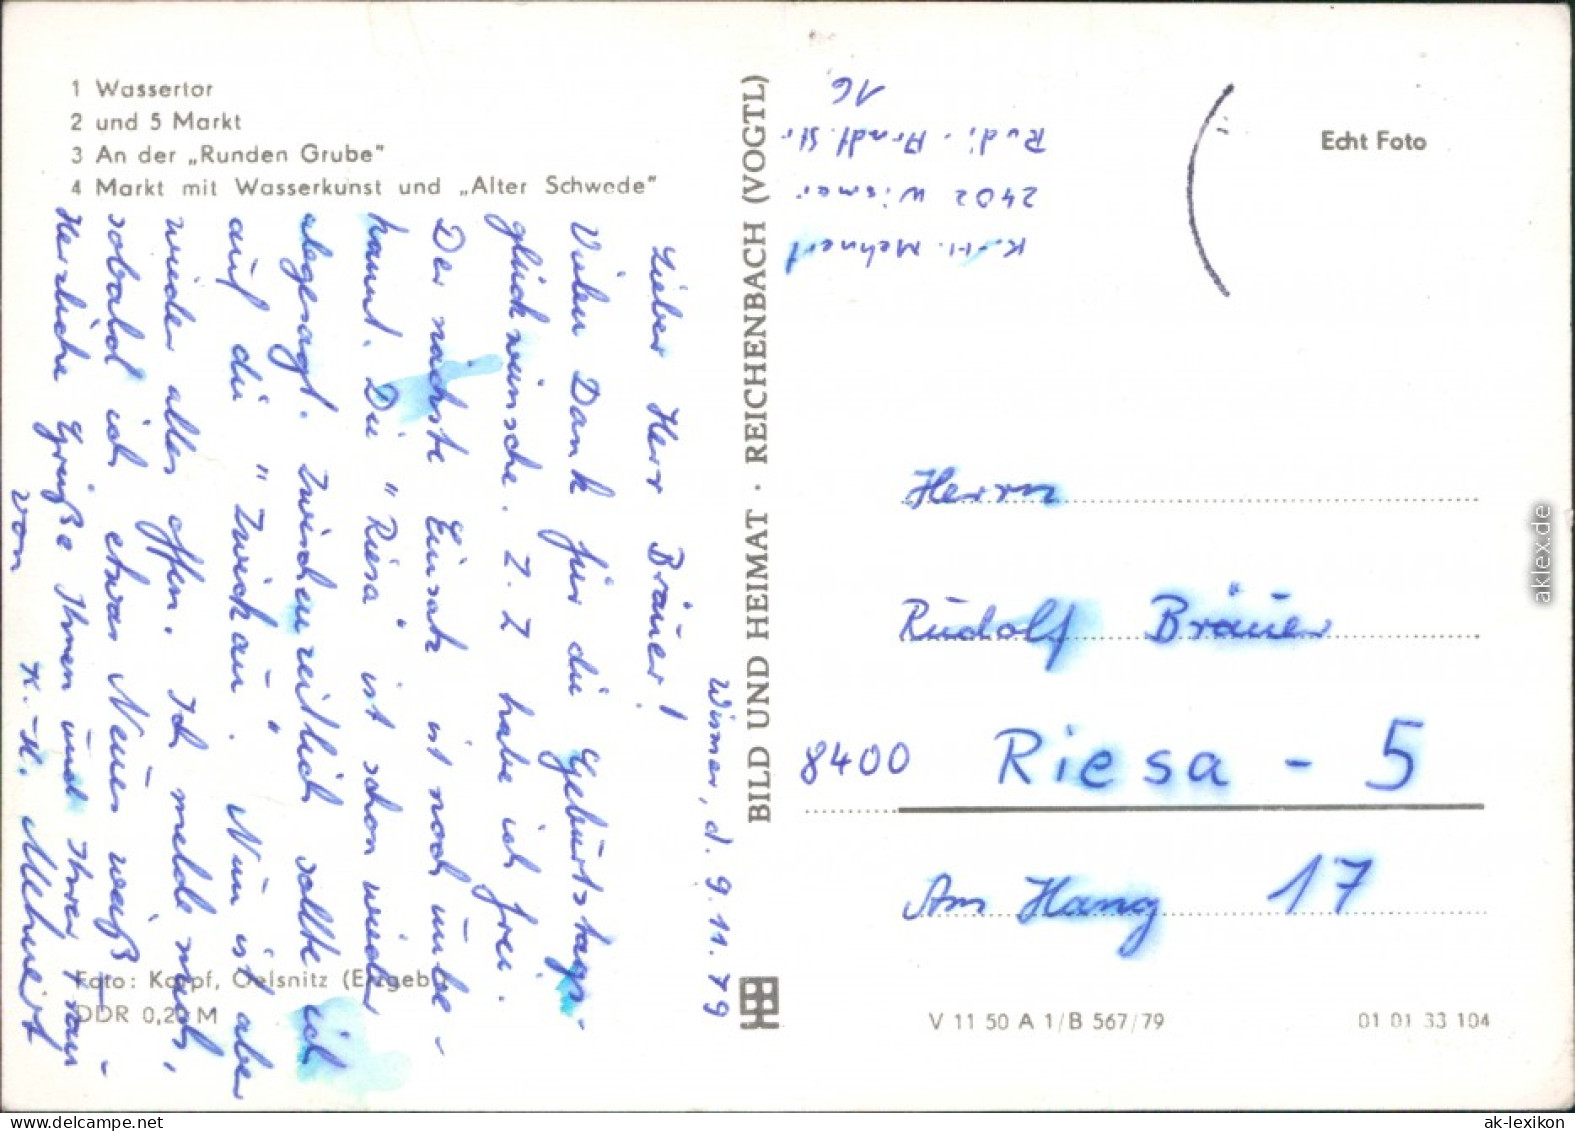 1 Wassertor
2 und 5 Markt
3 An der „Runden Grube"
4 Markt mit Wasserkunst und „Alter Schwede"
Wismar, d. 9.11.79
Lieber Herr Bräuer!
Vielen Dank für die Geburtstags-
glückwünsche. Z. Z habe ich frei.
Der nächste Einsatz ist noch unbe-
kannt. Die "Riesa" ist schon wieder
abgesagt. Zwischenzeitlich sollte ich
auf die "Zwickau". Nun ist aber
wieder alles offen. Ich melde mich,
sobald ich etwas Neues weiß –
Herzliche Grüße Ihnen und Ihrer Frau
von K.-H. Mehnert
Foto: Karpf, Oelsnitz (Erzgeb.)
DDR 0,20 M
BILD UND HEIMAT · REICHENBACH (VOGTL)
K.-H. Mehnert
2402 Wismar
Rudi-Arndt.Str
16
Echt Foto
Herrn
Rudolf Bräuer
8400 Riesa - 5
Am Hang 17
V 11 50 A 1/B 567/79
01 01 33 104
aklex.de
ak-lexikon